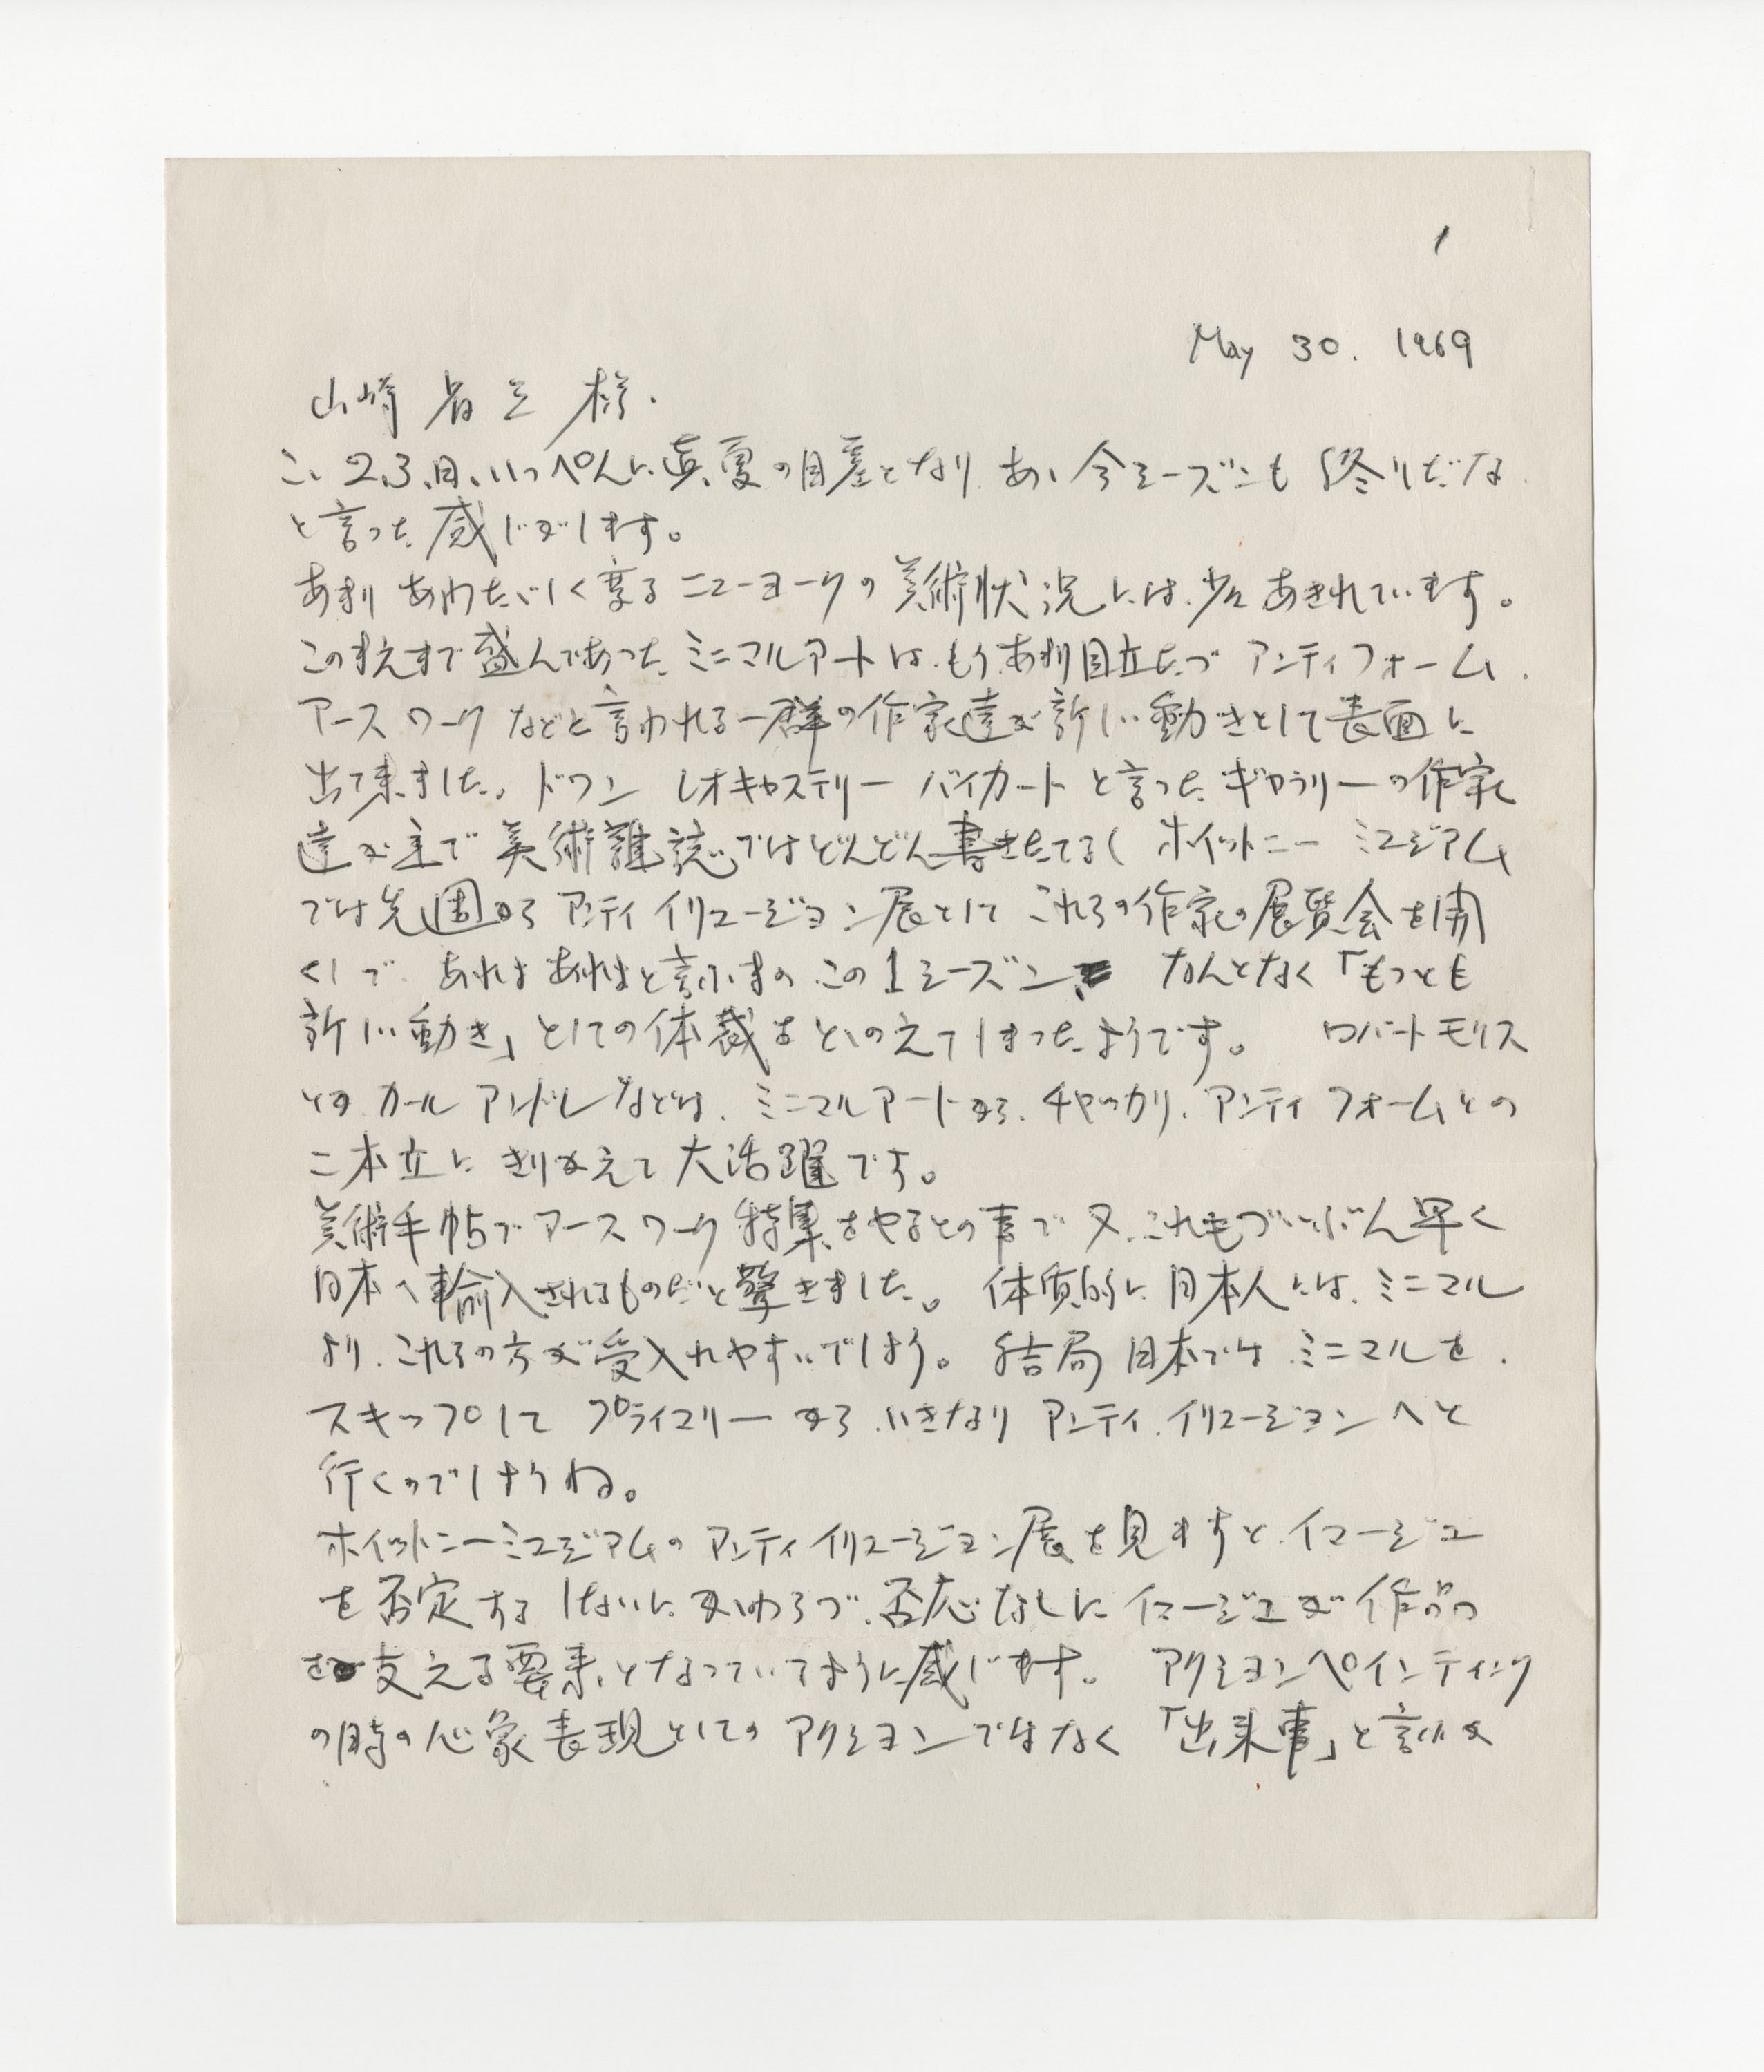 1
May 30. 1969
山崎省三様.
こゝ2,3,日、いっぺんに真夏の日差となり、あゝ今シーズンも終りだな
と言った感じがします。
あまりあわたゞしく変るニューヨークの美術状況には、少々あきれています。
このまえまで盛んであったミニマルアートは、もうあまり目立たづ アンティフォーム、
アースワークなどと言われる一群の作家達が新しい動きとして表面に
出て来ました。ドワン レオキャステリー バイカートと言ったギャラリーの作家
達が主で 美術雑誌ではどんどん書きたてるし ホイットニー ミュジアム
では先週から アンティイリュージョン展として これらの作家の展覧会を開
くしで、あれよあれよと言ふまの、この1シーズン、なんとなく「もっとも
新しい動き」としての体裁をとゝのえてしまったようです。 ロバートモリス
とか カール アンドレなどは、ミニマルアートから、チャッカリ、アンティフォームとの
二本立にきりかえて大活躍です。
美術手帖でアースワーク特集をやるとの事で 又、これもづいぶん早く
日本へ輸入されるものだと驚きました。 体質的に日本人には、ミニマル
より、これらの方が受入れやすいでしょう。 結局 日本では、ミニマルを、
スキップして プライマリーから、いきなり アンティ、イリュージョンへと
行くのでしょうね。
ホイットニーミュジアムの アンティイリュージョン展を見ますと、イマージュ
を否定する しないにかゝわらづ、否応なしに イマージュが作品
を支える要素となっていてように感じます。 アクションペインティング
の時の心象表現としての アクションではなく 「出来事」と言ふか